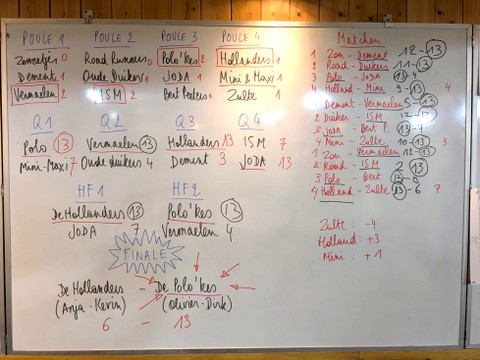 POULE 1 POULE 2 POULE 3 POULE 4
Zonnetjes 0 Road Runners 0 Polo'kes 2 Hollanders 1
Dement 1 Oude Duikers 1 JODA 1 Mini & Maxi 1
Vermaelen 2 ISM 2 Bert Peeters 0 Zulte 1
Q1 Q2 Q3 Q4
Polo 13 Vermaelen 13 Hollanders 13 ISM 7
Mini-Maxi 7 Oude duikers 4 Dement 3 JODA 13
HF1 HF2
De Hollanders 13 Polo'kes 13
JODA 7 Vermaelen 4
FINALE
De Hollanders - De Polo'kes
(Anja - Kevin) (Olivier - Dirk)
6 - 13
Matchen
1 Zon - Dement 12 - 13
2 Road - Duikers 11 - 13
3 Polo - JODA 13 - 4
4 Holland - Mini 9 - 13 4
1 Dement - Vermaelen 5 - 13
2 Duiker - ISM 12 - 13
3 JODA - Bert P. 13 - 7
4 Mini - Zulte 10 - 13 3
1 Zon - Vermaelen 12 - 13
2 Road - ISM 2 13
3 Polo - Bert 13 - 0
4 Holland - Zulte 13 - 6 7
Zulte : -4
Holland : +3
Mini : +1